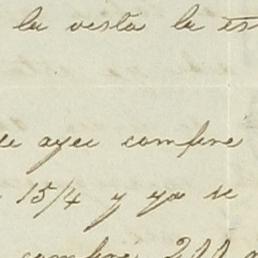 la vesta la es
ue ayer compre
15/4 y ya se
compre 200